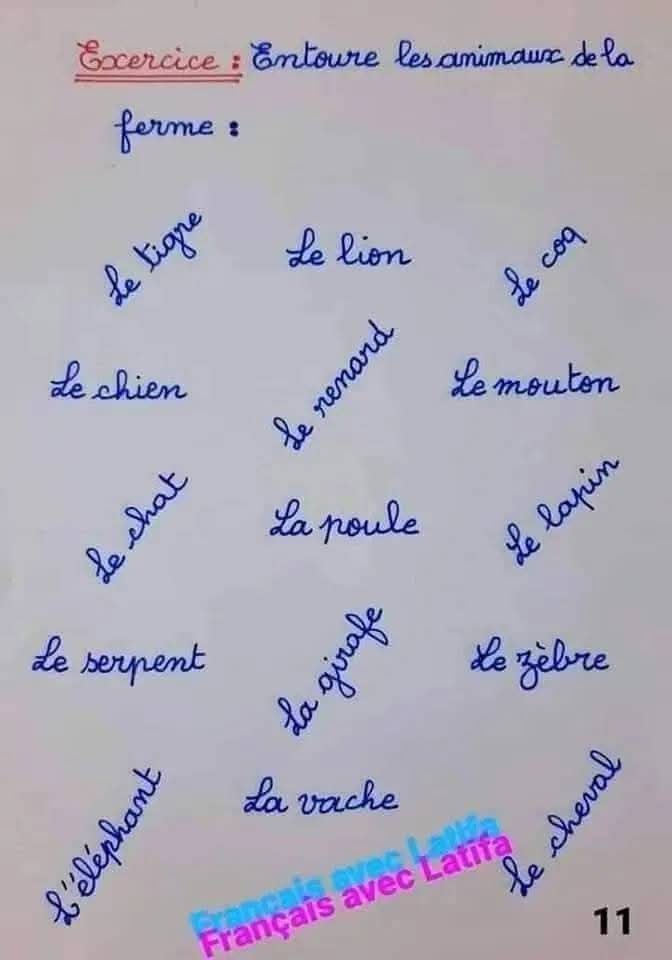 Exercice : Entoure les animaux de la
ferme :
Le tigre
Le lion
Le coq
Le chien
Le renard
Le mouton
Le chat
La poule
Le lapin
Le serpent
La girafe
Le zèbre
L'éléphant
La vache
Le cheval
Français avec Latifa
Français avec Latifa
11